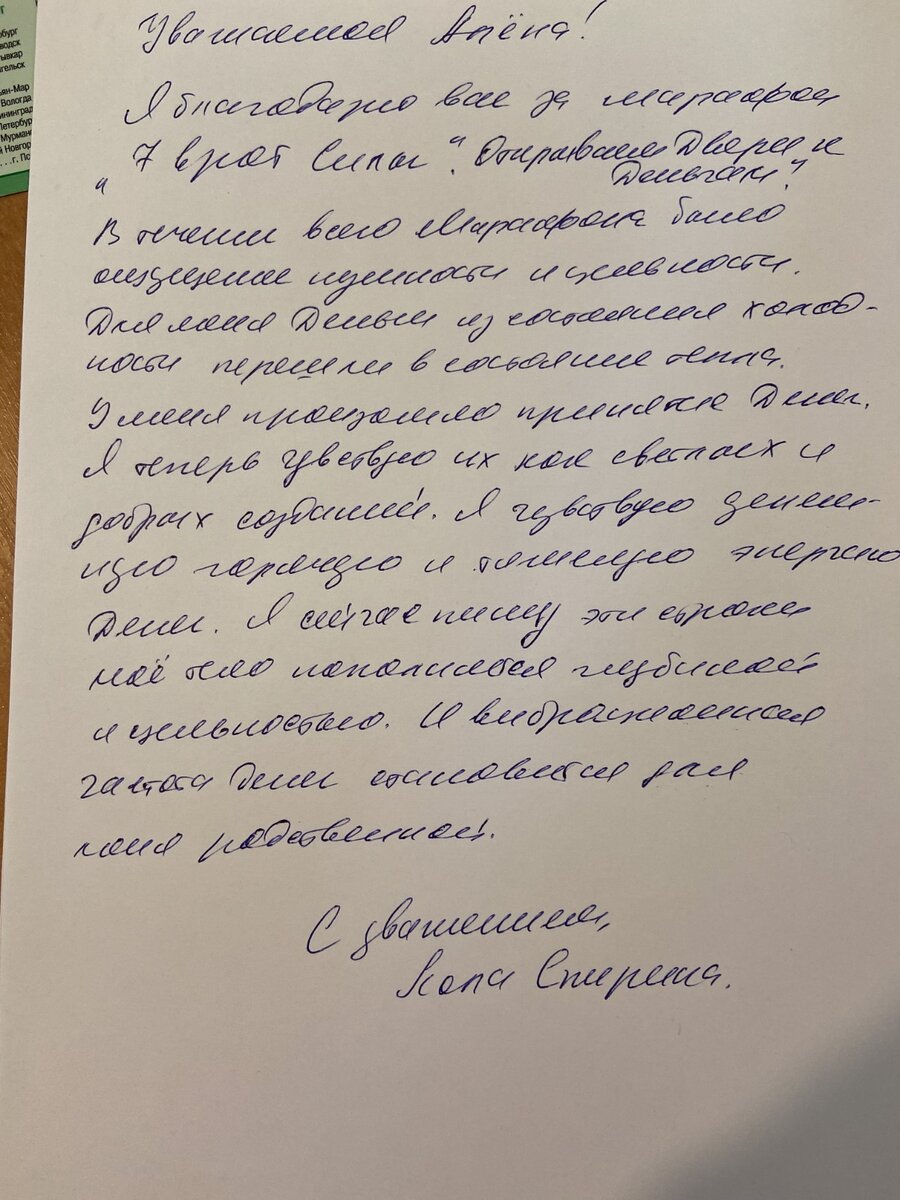 г
бург
водск
ывкар
гельск
ян-Мар
Вологда
ининград
Петербу
Мурман
й Новгор
. . .г. Пс
Уважаемая Алёна!
Я благодарю вас за марафон
"7 врат Силы". Открываем Двери к
Деньгам".
В течении всего Марафона было
ощущение нужности и цельности.
Для меня Деньги из состояния холод-
ности перешли в состояние тепла.
У меня произошло принятие Денег.
Я теперь чувствую их как светлых и
добрых созданий. Я чувствую
горячую и энергию
Денег. Я сейчас пишу эти строки
моё тело наполняется глубиной
и цельностью. И вибрационная
частота Денег становится для
меня родственной.
С уважением,
Спирина.